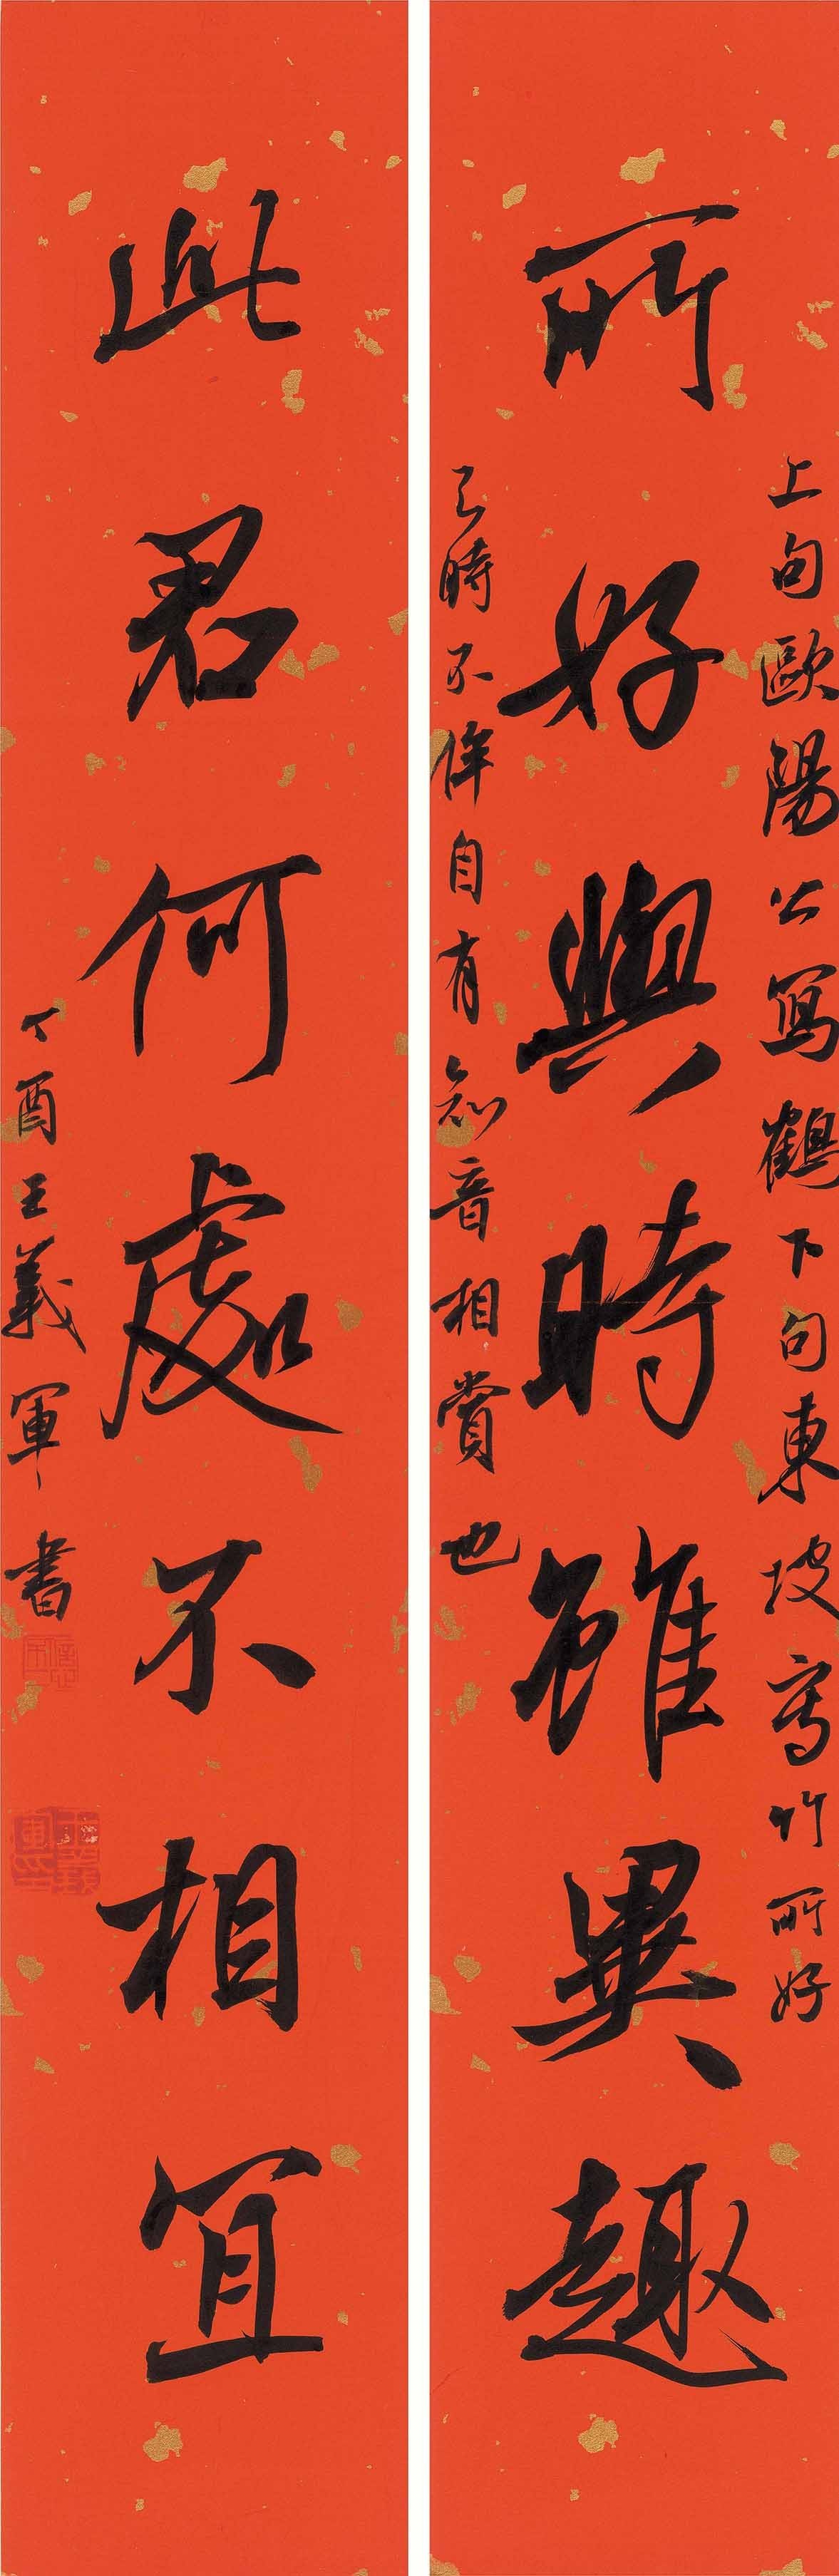 上句歐陽公寫鶴下句東坡寫竹所好
所好與時雖異趣
時不侔自有知音相賞也
此君何處不相宜
丁酉王義軍書
王義軍印